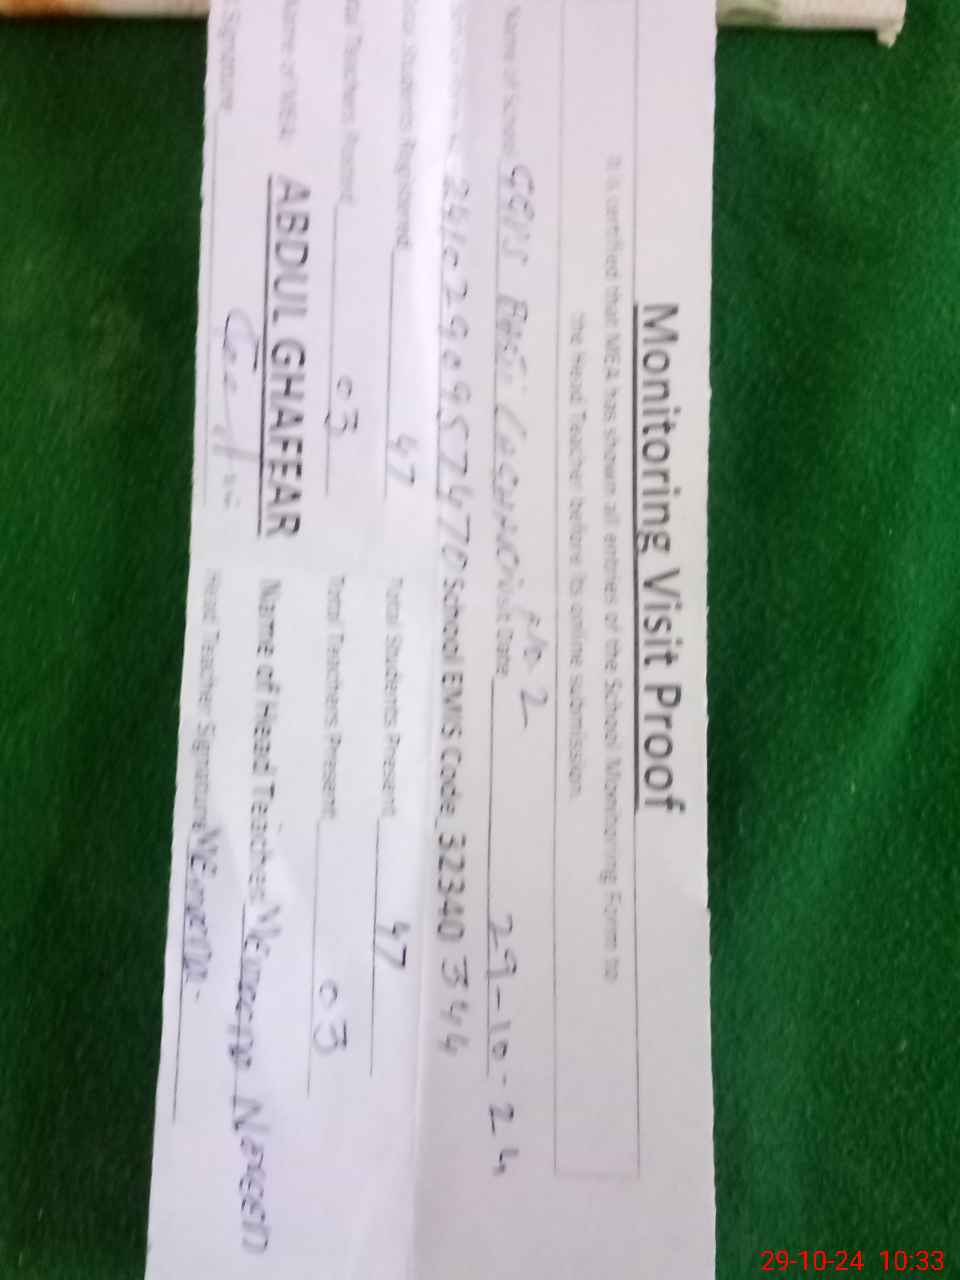 Monitoring Visit Proof
It is certified that MEA has shown all entries of the School Monitoring Form to
the Head Teacher before its online submission.
Name of School GGPS No 2 Visit Date 29-10-24
2410290957470 School EMIS Code 32340344
Total Students Registered 47 Total Students Present 47
Total Teachers Posted 03 Total Teachers Present 03
Name of MEA: ABDUL GHAFEAR Name of Head Teacher
Signature Head Teacher Signature
29-10-24 10:33